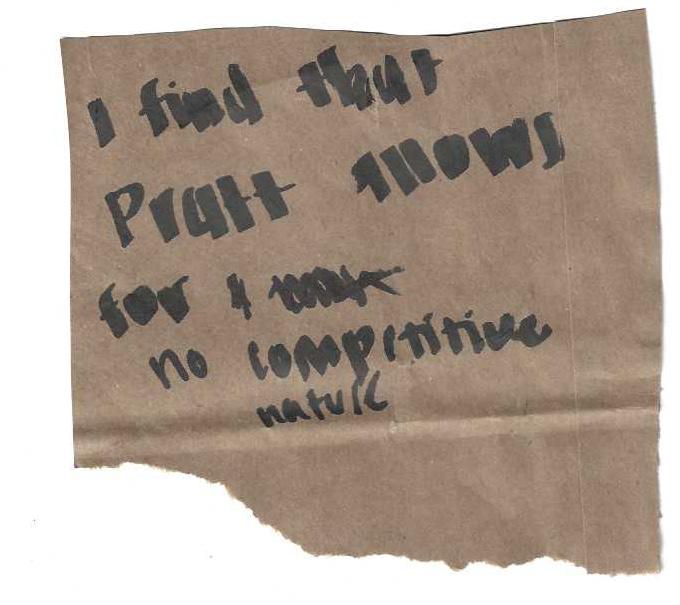 I find that
Pratt allows
for a
no competitive
nature